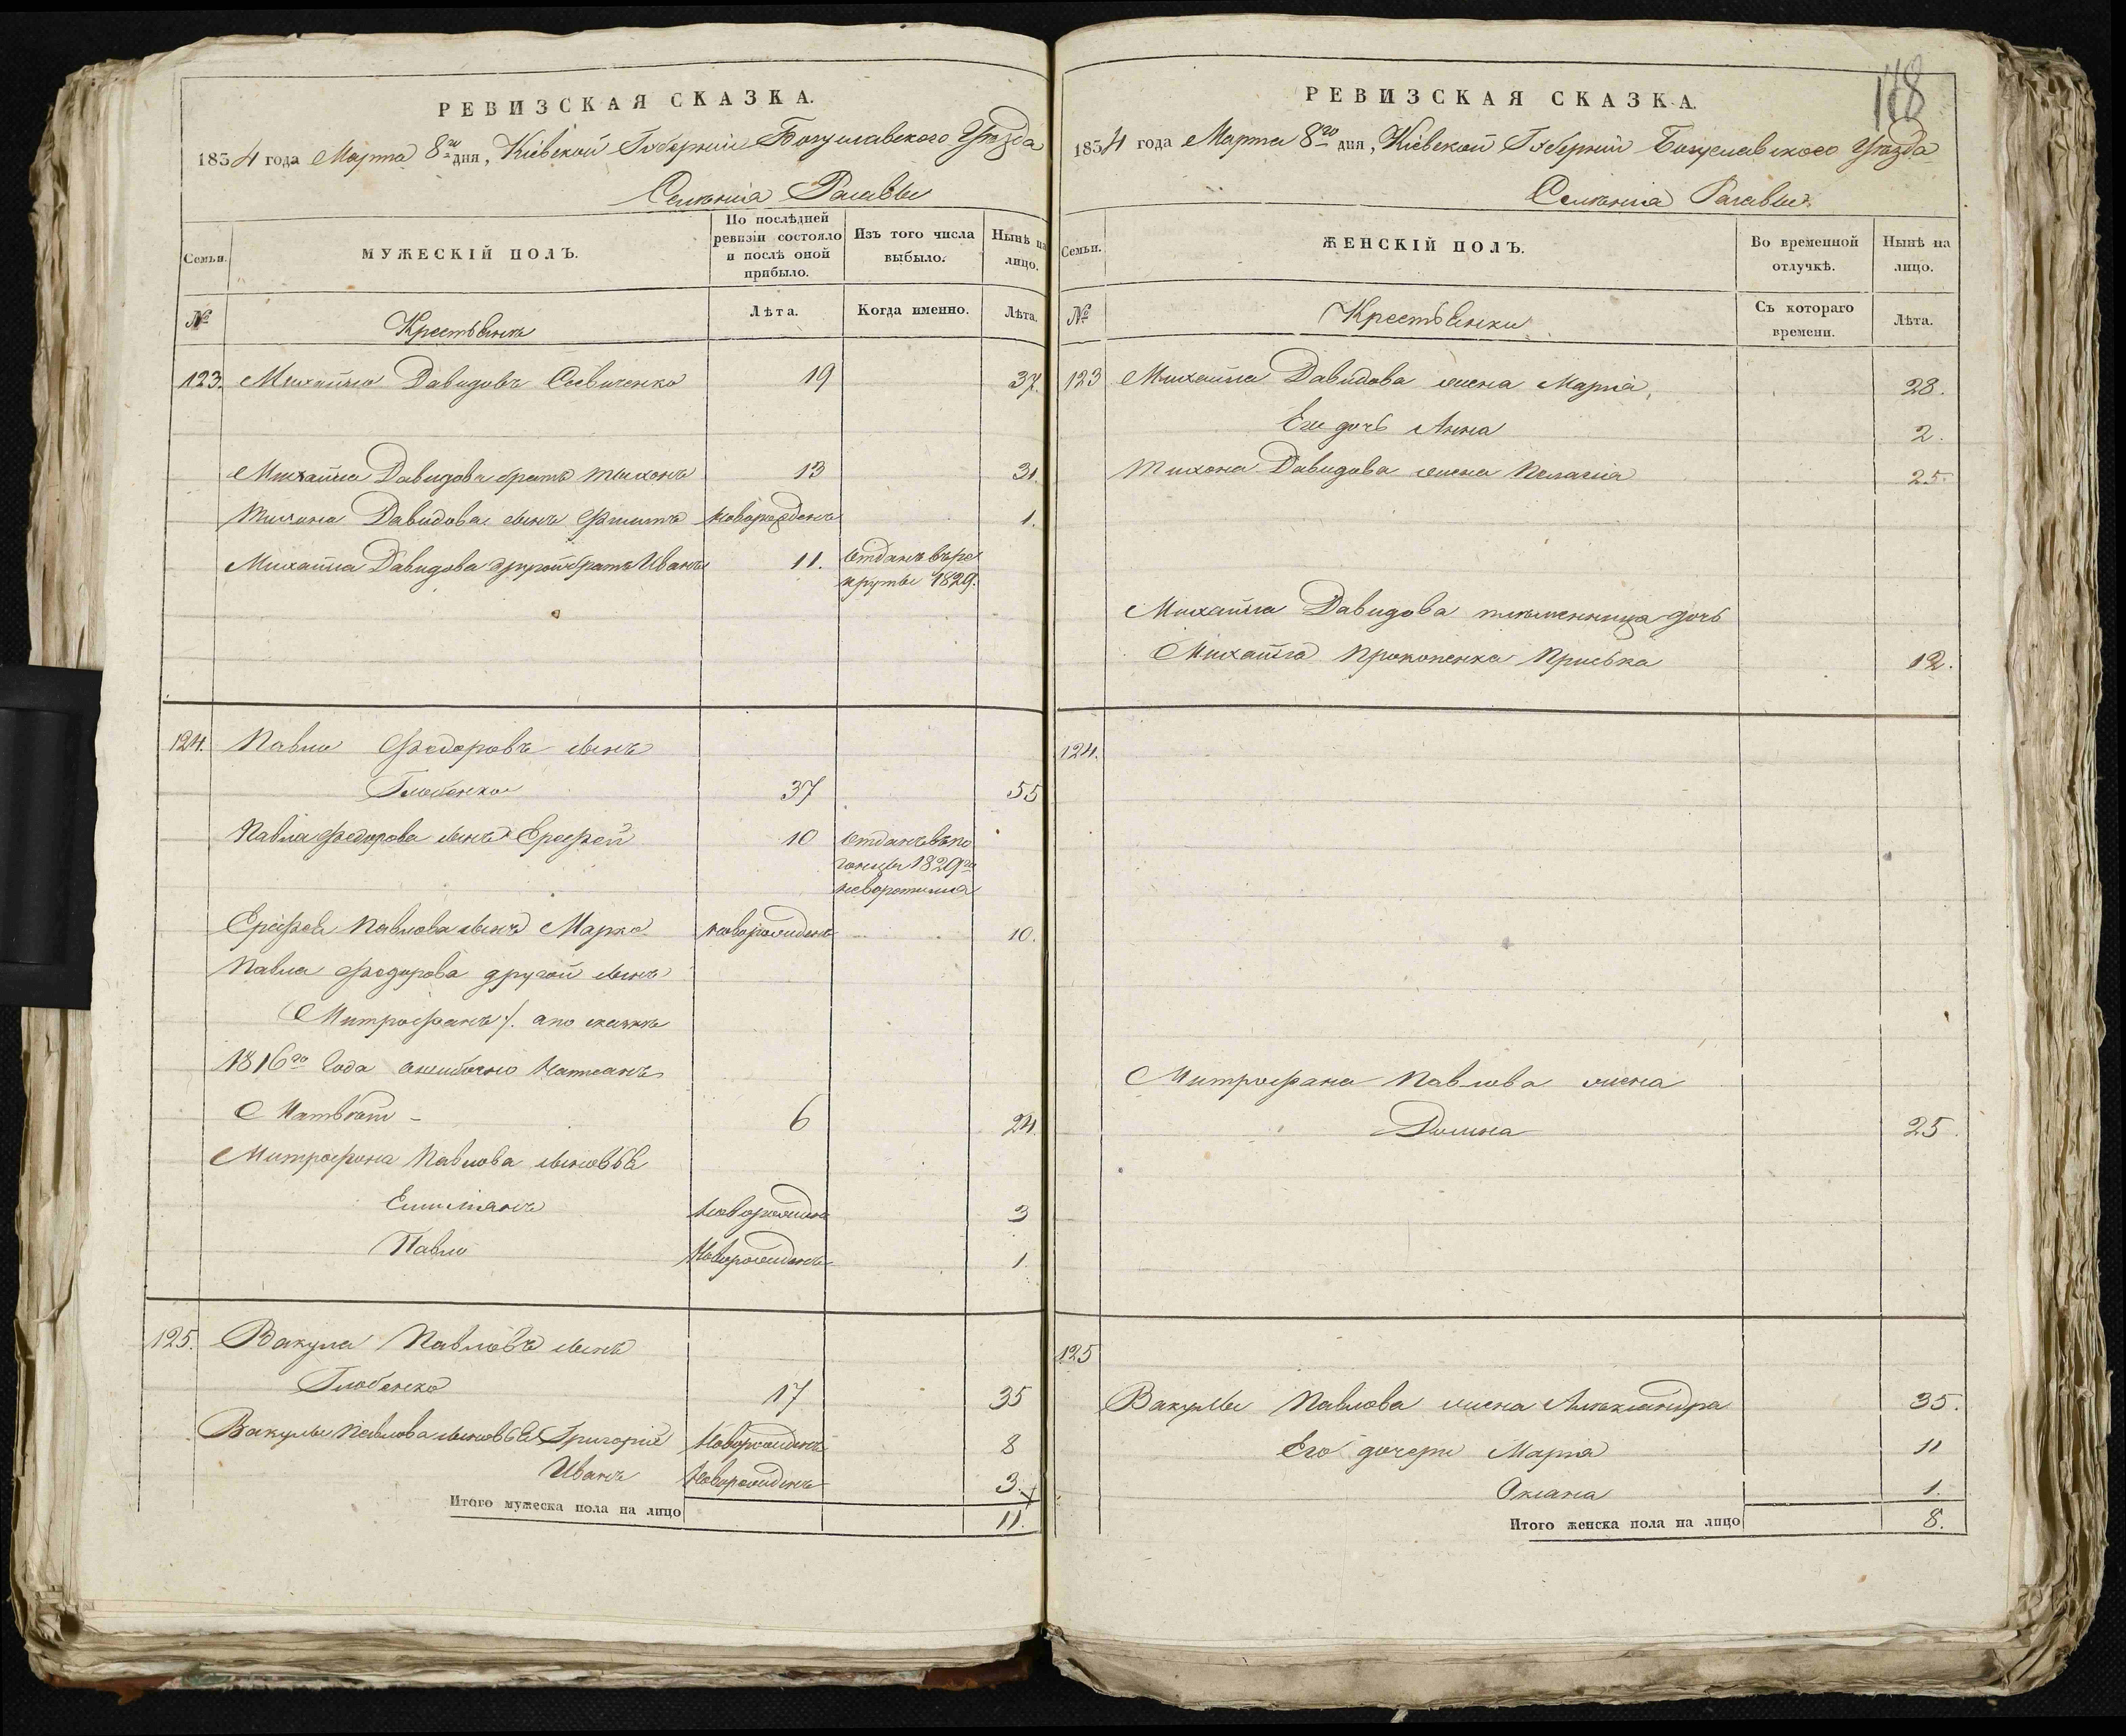 РЕВИЗСКАЯ СКАЗКА.
1834 года Марта 8го дня, Кіевской Губерніи Богуславского Уѣзда
Селенія Расавы
Семьи.
МУЖЕСКІЙ ПОЛЪ.
По послѣдней ревизіи состояло и послѣ оной прибыло.
Изъ того числа выбыло.
Нынѣ на лицо.
№
Крестьяне
Лѣта.
Когда именно.
Лѣта.
123. Михайло Давидовъ 19 37.
Михайла Давидова братъ Тихонъ 13 31.
Тихона Давидова сынъ Филипъ новорожденъ 1.
Михайла Давидова другой братъ Иванъ 11. отданъ въ ре
круты 1829.
124. Павло Федоровъ сынъ
Глобенко 37 55
Павла Федорова сынъ Ерофей 10 отданъ въ по
гонцы 1829го
неворотился
Ерофея Павлова сынъ Марко новорожденъ 10.
Павла Федорова другой сынъ
Митрофанъ /. а по сказкѣ
1816го Года ошибочно написанъ
Матвѣй 6 24.
Митрофана Павлова сыновья
Емилианъ новорожденъ 3
Павло Новорожденъ 1
125. Вакула Павловъ сынъ
Глобенко 17 35
Вакулы Павлова сыновья Григорій Новорожденъ 8
Иванъ Новорожденъ 3.
Итого мужеска пола на лицо 11.
118
РЕВИЗСКАЯ СКАЗКА.
1834 года Марта 8го дня, Кіевской Губерніи Богуславского Уѣзда
Селенія Расавы
Семьи.
ЖЕНСКІЙ ПОЛЪ.
Во временной отлучкѣ.
Нынѣ на лицо.
№
Крестьянки
Съ котораго времени.
Лѣта.
123 Михайла Давидова жена Марія, 28.
Его дочь Анна 2.
Тихона Давидова жена Пелагія 25.
Михайла Давидова племенница дочь
Михайла Прокопенка Приська 12.
124.
Митрофана Павлова жена
Домна 25.
125
Вакулы Павлова жена Александра 35.
Его дочери Марія 11
Оксана 1.
Итого женска пола на лицо 8.